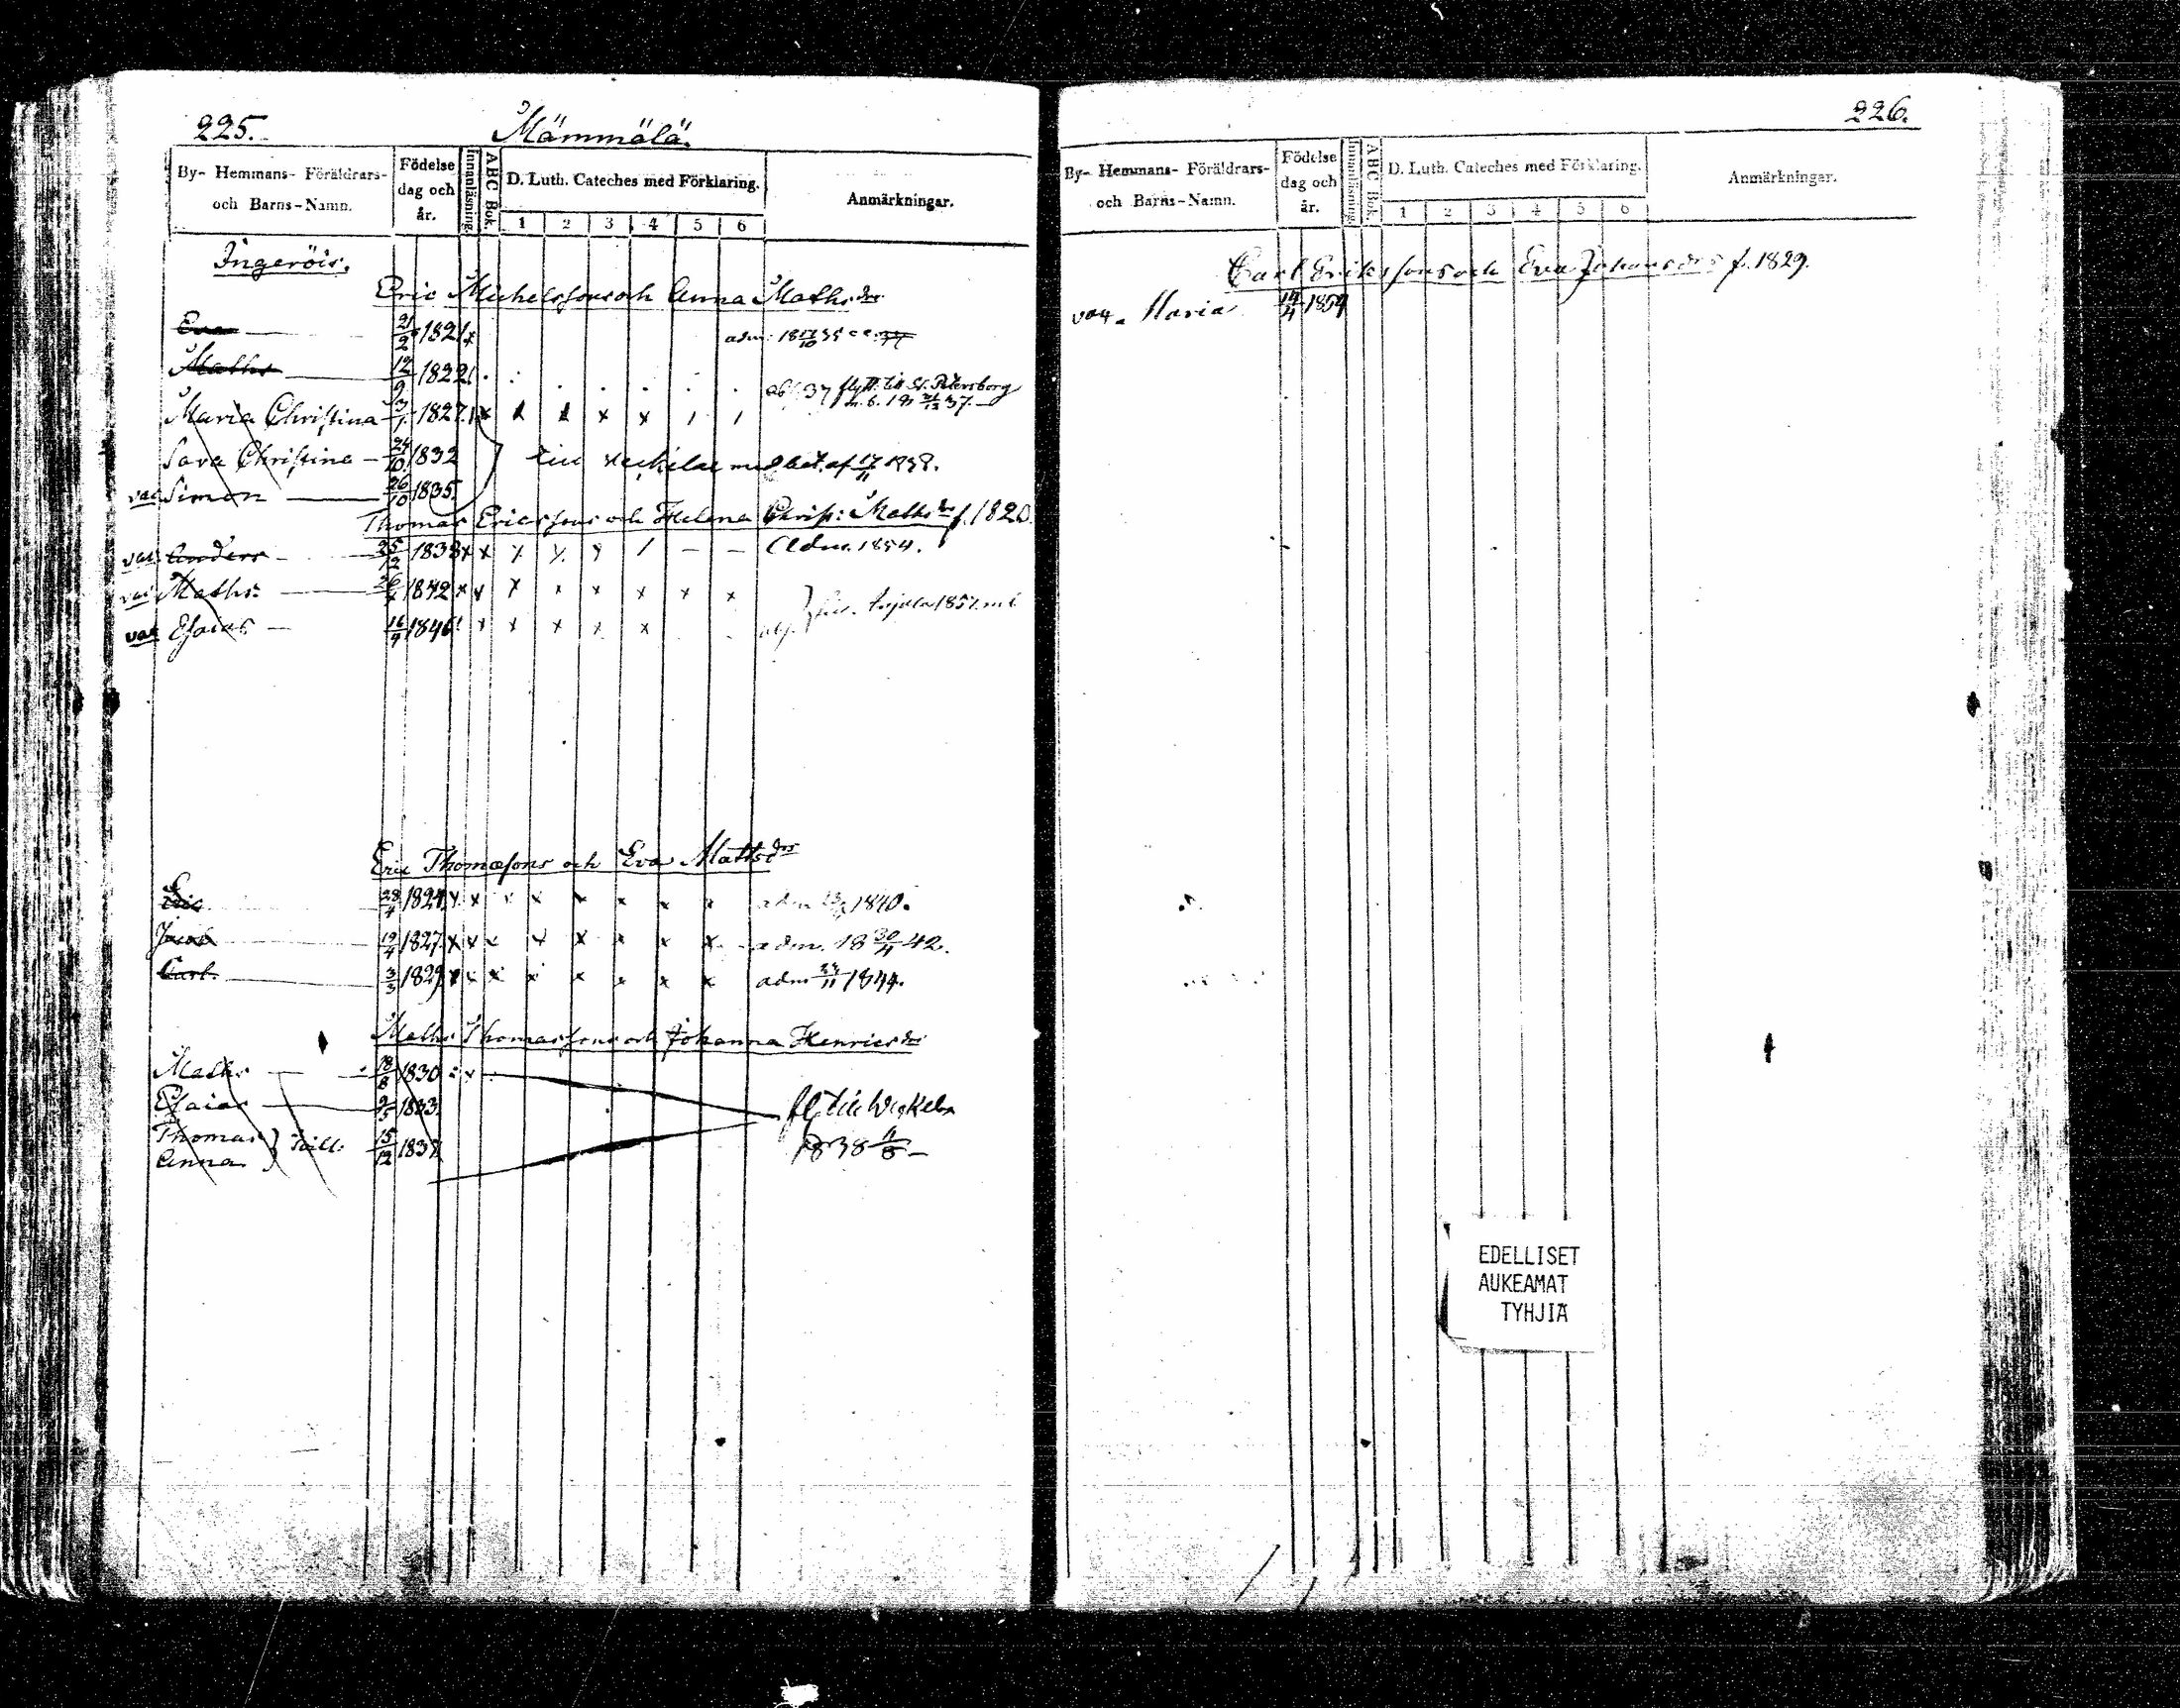 225.
Mämmälä.
By- Hemmans- Föräldrars- och Barns-Namn.
Födelse dag och år.
Innanläsning.
ABC Bok.
D. Luth. Cateches med Förklaring.
1 2 3 4 5 6
Anmärkningar.
Ingeröis.
Eric Michelssons och Anna Mathsdr
Eva 21/2 1821
Maths 12/9 1822
flytt. till St. Petersborg
Maria Christina 3/1 1827 x x x
Sara Christina 24/10 1832 med bet. af 17/11 1838.
vac Simon 26/10 1835
Thomas Ericssons och Helena Christ: Mathsdr f. 1820.
vac Anders 25/12 1838 x x x x / – – Adm. 1854.
vac Maths 1842 x x x x x x x x
vac Esaias 1846 x x x x x
Eric Thomæsons och Eva Mattsdrs
Eric 28/4 1824 adm 1840.
Jacob 19/4 1827 x x x x x x x x adm. 18 30/4 42.
Carl. 3/3 1829 x x x x x x x x adm 24/11 1844.
Maths Thomassons och Johanna Henricsdr
Maths 18/8 1830
Esaias 1833
Thomas
Anna } Tvill. 15/12
1838 11/8 –
226.
By- Hemmans- Föräldrars- och Barns-Namn.
Födelse dag och år.
Innanläsning.
ABC Bok.
D. Luth. Cateches med Förklaring.
1 2 3 4 5 6
Anmärkningar.
Carl Erikssons och Eva Johansdrs f. 1829.
vac. Maria 14/4 1854
EDELLISET
AUKEAMAT
TYHJIA